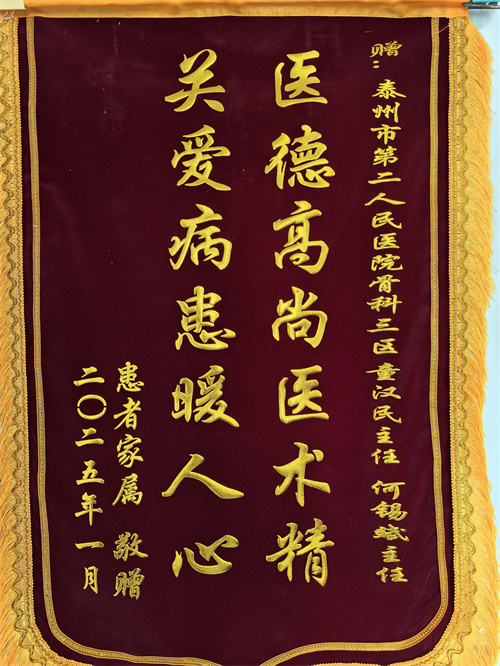 赠：泰州市第二人民医院骨科三区童汉民主任 何锡斌主任
医德高尚医术精
关爱病患暖人心
患者家属 敬赠
二〇二五年一月